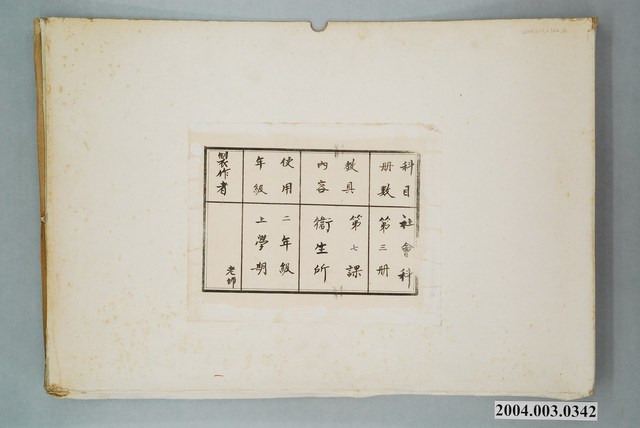 科目 社會科
冊數 第三冊
教具 第七課
內容 衛生所
使用 二年級
年級 上學期
製作者 老師
2004.003.0342